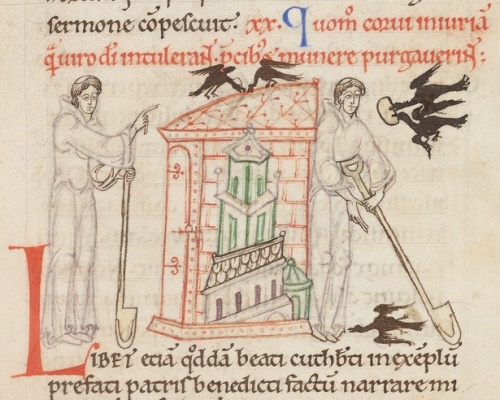 sermone cōpescuit. xx. Quom̄ corui iniuriā
q̄ uiro dī intulerāt p̄cib; & munere purgauerīt:
LIBET etiā qd̄dā beati cuthb̄ti in exēplū
prefati patris benedicti factū narrare mi